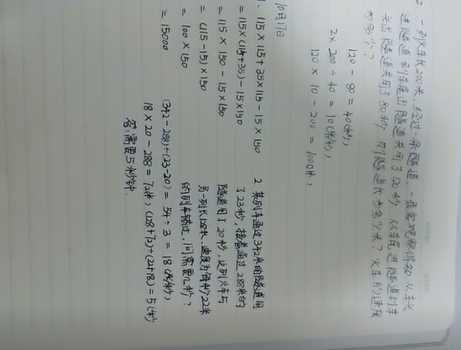 10月17日
1. 115×115+35×115-15×150
=115×(115+35)-15×150
=115×150-15×150
=(115-15)×150
=100×150
=15000
2. 某列车通过342米的隧道用
了23秒,接着通过288米的
隧道用了20秒,这列火车与
另一列长128米,速度为每秒22米
的列车错过,问需要几秒?
(342-288)÷(23-20)=54÷3=18(米/秒),
18×20-288=72米,(128+72)÷(22+18)=5(秒)
答:需要5秒钟.
一列火车长200米,经过一条隧道,一乘客观察得知,从车头
进隧道到车尾出隧道共用了120秒,从车尾进隧道到车
头出隧道共用了80秒,隧道长为多少米?火车的速度
为多少?
120-80=40(秒),
2×200÷40=10(米/秒),
120×10-200=1000米,